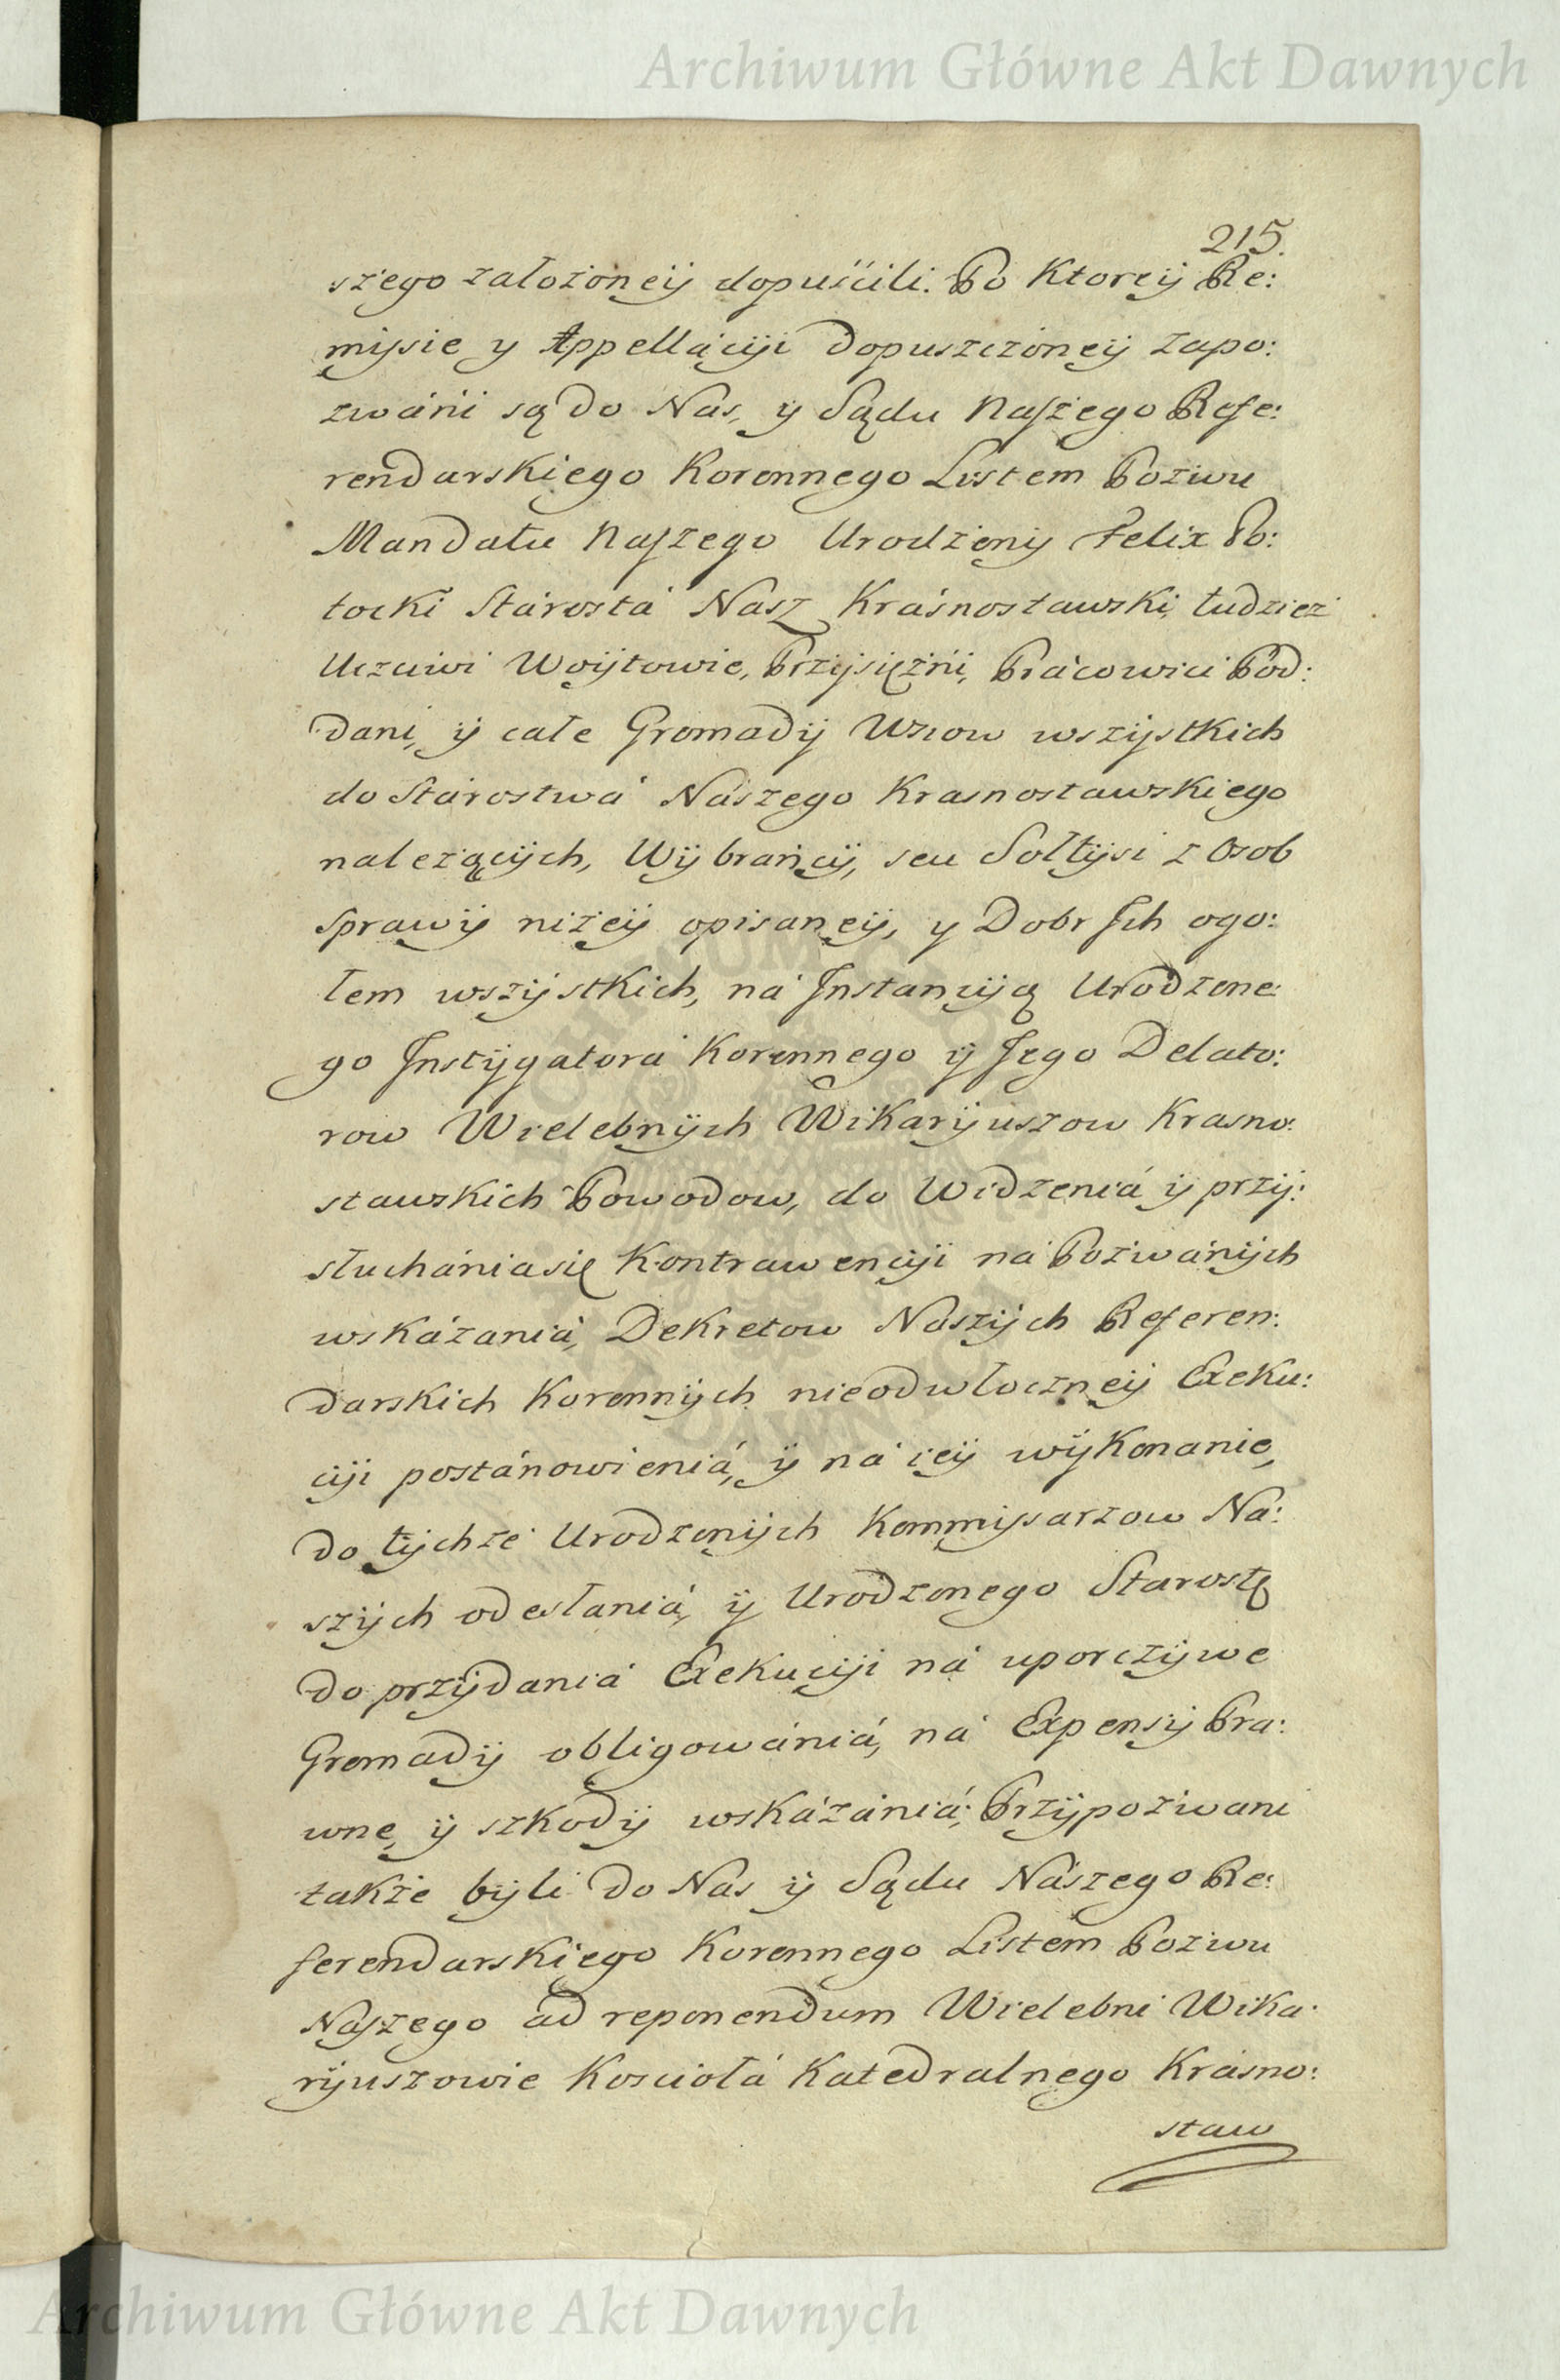 Archiwum Główne Akt Dawnych
215.
szego założoneÿ dopuścili. Po Ktoreÿ Re:
mÿsie y Appellácÿi dopuszczoneÿ zapo:
zwáni są do Nas, ÿ Sądu Naszego Refe:
rendarskiego Koronnego Listem Pozwu
Mandatu Naszego Urodzonÿ Felix Po:
tocki Stárostá Nasz Krásnostawski, tudzież
Uczciwi Woÿtowie, Przÿsiężni, Prácowici Pod:
dani, ÿ całe Gromadÿ Wsiow wszÿstkich
do Stárostwá Nászego Krasnostawskiego
należącÿch, Wÿbrańcÿ, seu Sołtÿsi z Osob
Sprawÿ niżeÿ opisaneÿ, y Dobr Ich ogo:
łem wszÿstkich, ná Instancÿą Urodzone:
go Instÿgatorá Koronnego ÿ Jego Delato:
row Wielebnÿch Wikarÿuszow Krasno:
stawskich Powodow, do Widzeniá ÿ przÿ:
słuchániasię Kontrawencÿi ná Pozwánÿch
wskázaniá, Dekretow Nászÿch Referen:
darskich Koronnÿch nieodwłoczneÿ Exeku:
cÿi postánowieniá, ÿ ná ieÿ wÿkonanie,
do tÿchże Urodzonÿch Kommissarzow Na:
szÿch odesłaniá, ÿ Urodzonego Starostę
do przÿdaniá Exekucÿi ná uporczÿwe
Gromadÿ obligowániá, ná Expensÿ Pra:
wne, ÿ szkodÿ wskázániá; Przÿpozwani
także bÿli do Nas ÿ Sądu Nászego Re:
ferendarskiego Koronnego Listem Pozwu
Naszego ad reponendum Wielebni Wika:
rÿuszowie Kosciołá Katedralnego Krásno:
staw
Archiwum Główne Akt Dawnych